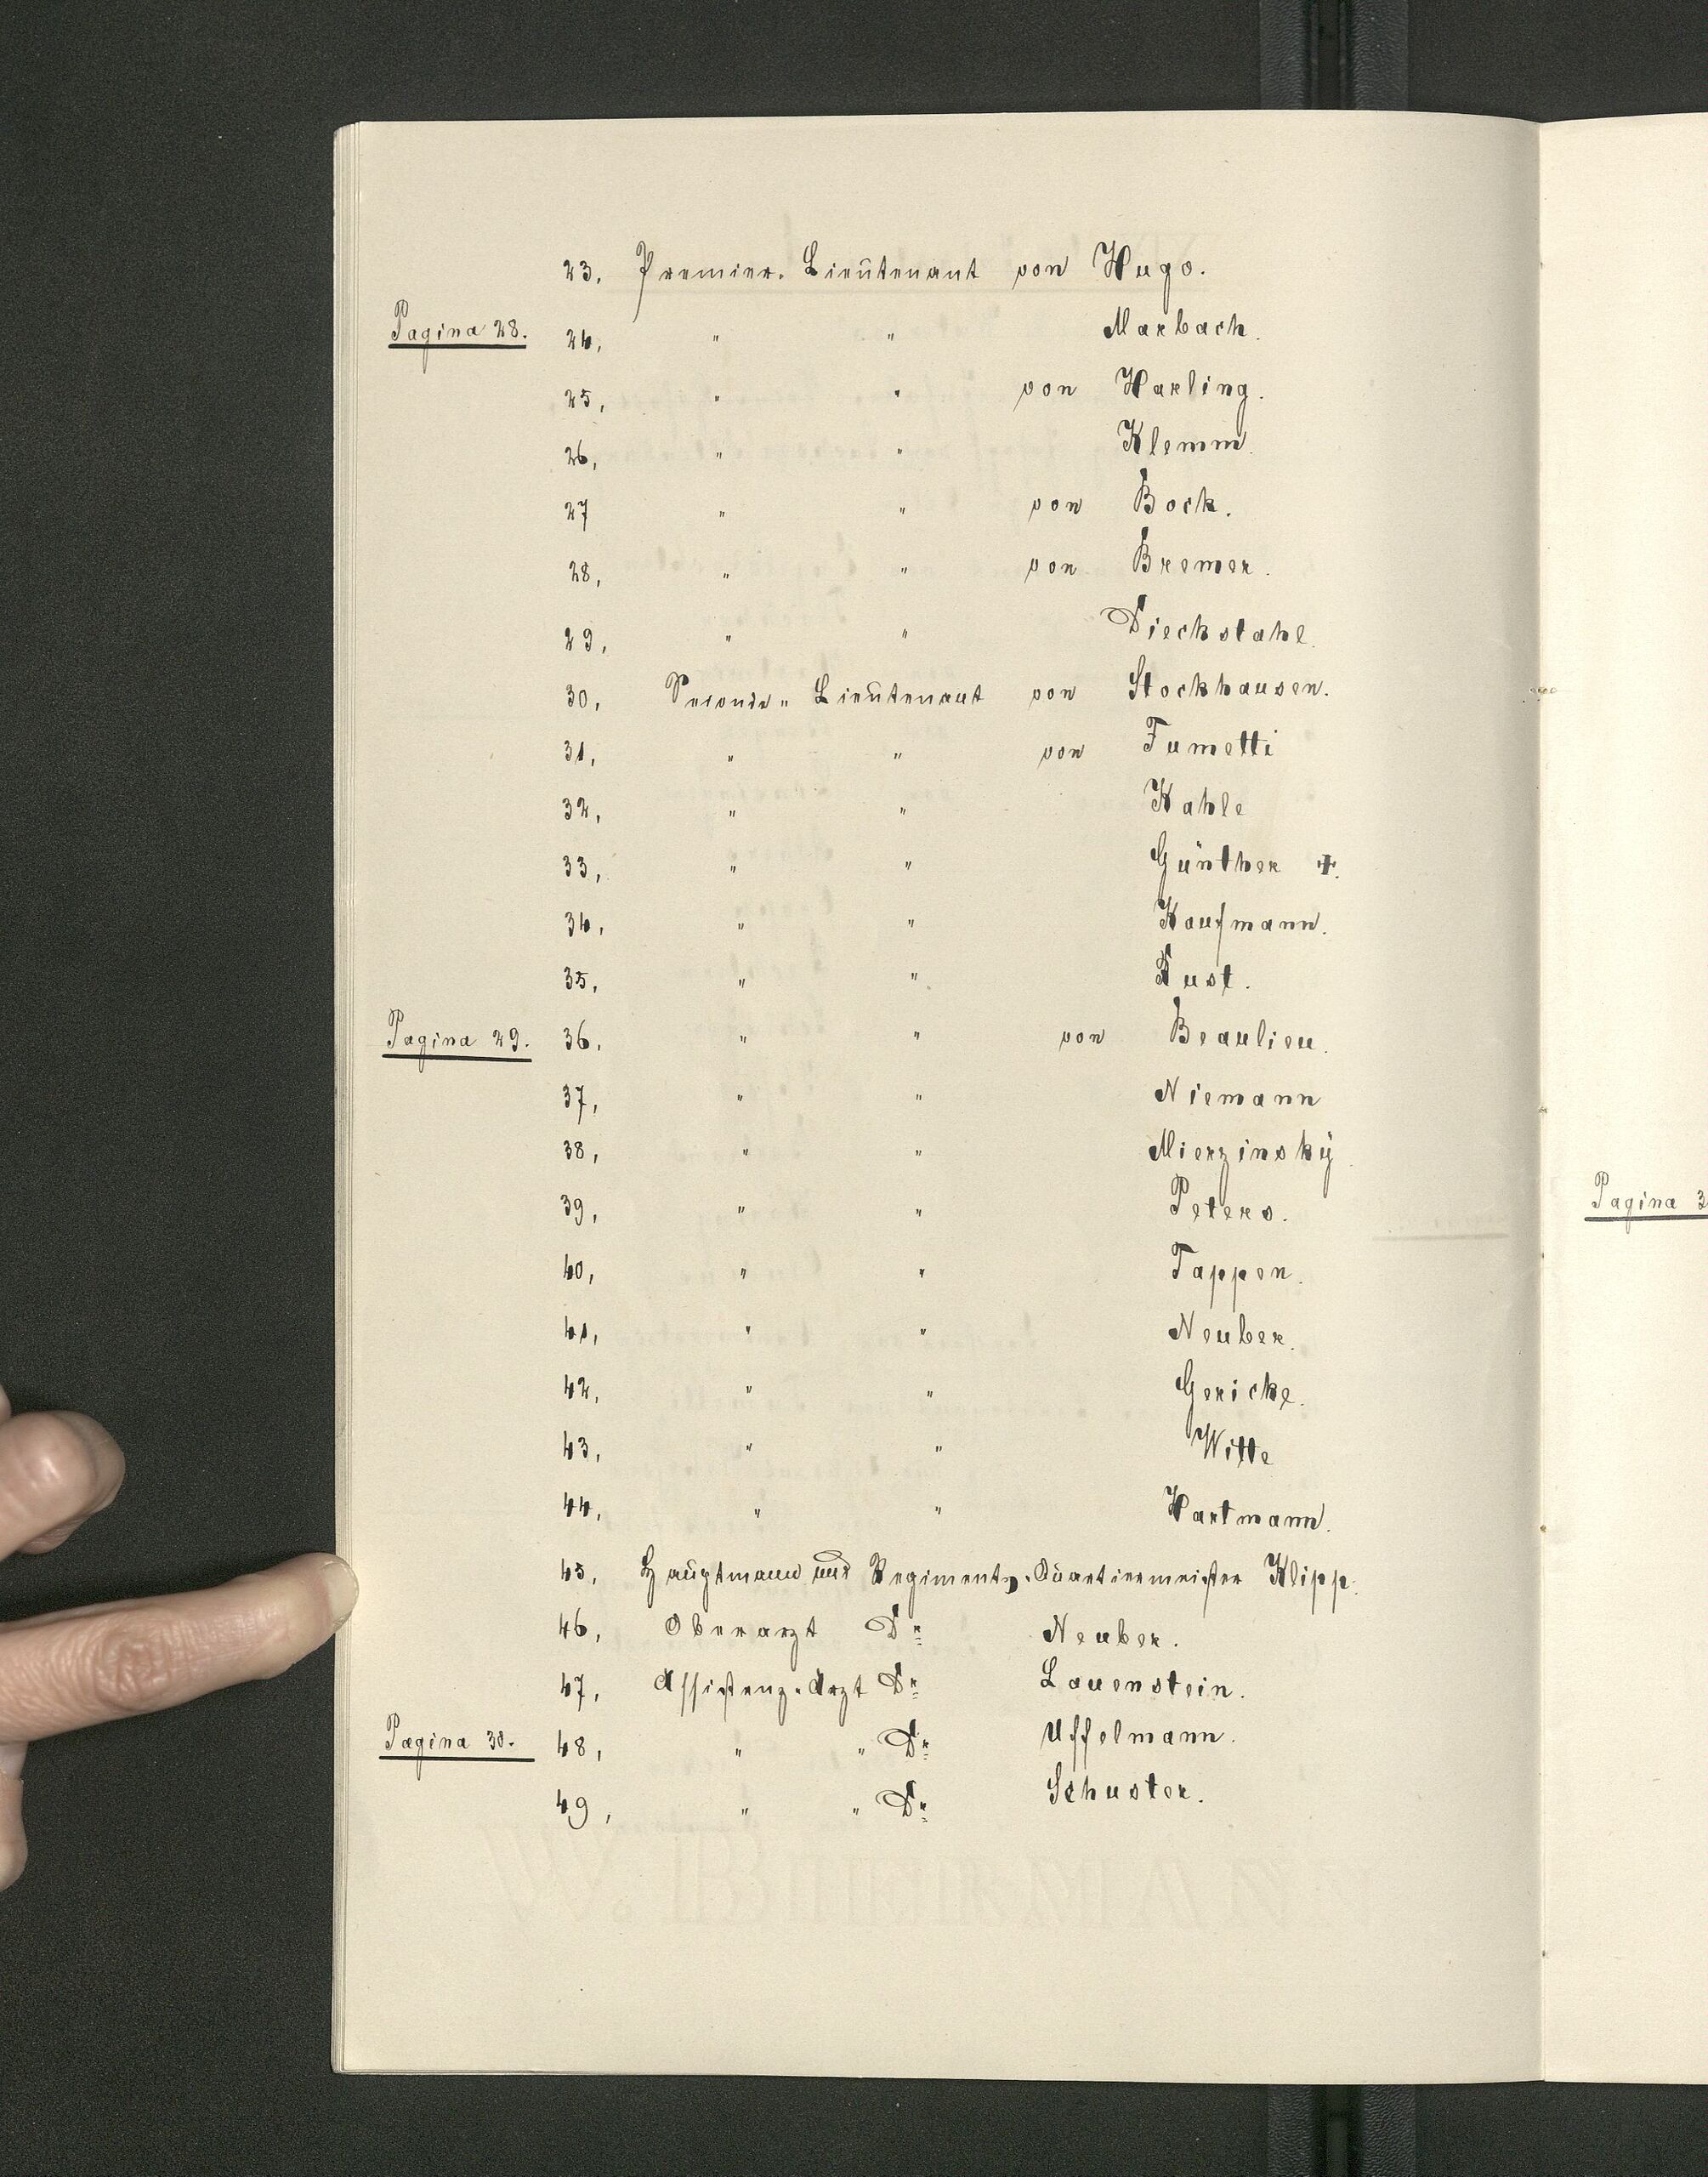 23, Premier-Lieutenant von Hugo.
Pagina 28. 24, " " Marbach.
25, " " von Harling.
26, " " Klemm.
27 " " von Bock.
28, " " von Bremer.
29, " " Dieckstahl.
30, Seconde-Lieutenant von Stockhausen.
31, " " von Fumetti
32, " " Kahle
33, " " Günther +.
34, " " Kaufmann.
35, " " Kust.
Pagina 29. 36. " " von Beaulieu.
37, " " Niemann
38, " " Mierzinsky
39, " " Peters.
40, " " Tappen.
41, " " Neuber.
42, " " Gericke.
43, " " Witte
44, " " Hartmann.
45, Hauptmann und Regiments-Quartiermeister Klipp.
46, Oberarzt Dr Neuber.
47, Assistenz-Arzt Dr Lauenstein.
Pagina 30. 48, " " Dr Uffelmann.
49, " " Dr Schuster.
Pagina 3